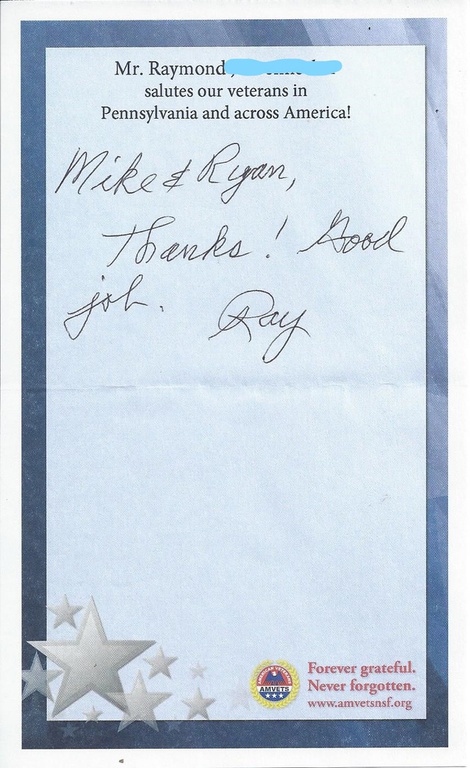 Mr. Raymond
salutes our veterans in
Pennsylvania and across America!
Mike & Ryan,
Thanks! Good
job. Ray
AMVETS
Forever grateful.
Never forgotten.
www.amvetsnsf.org